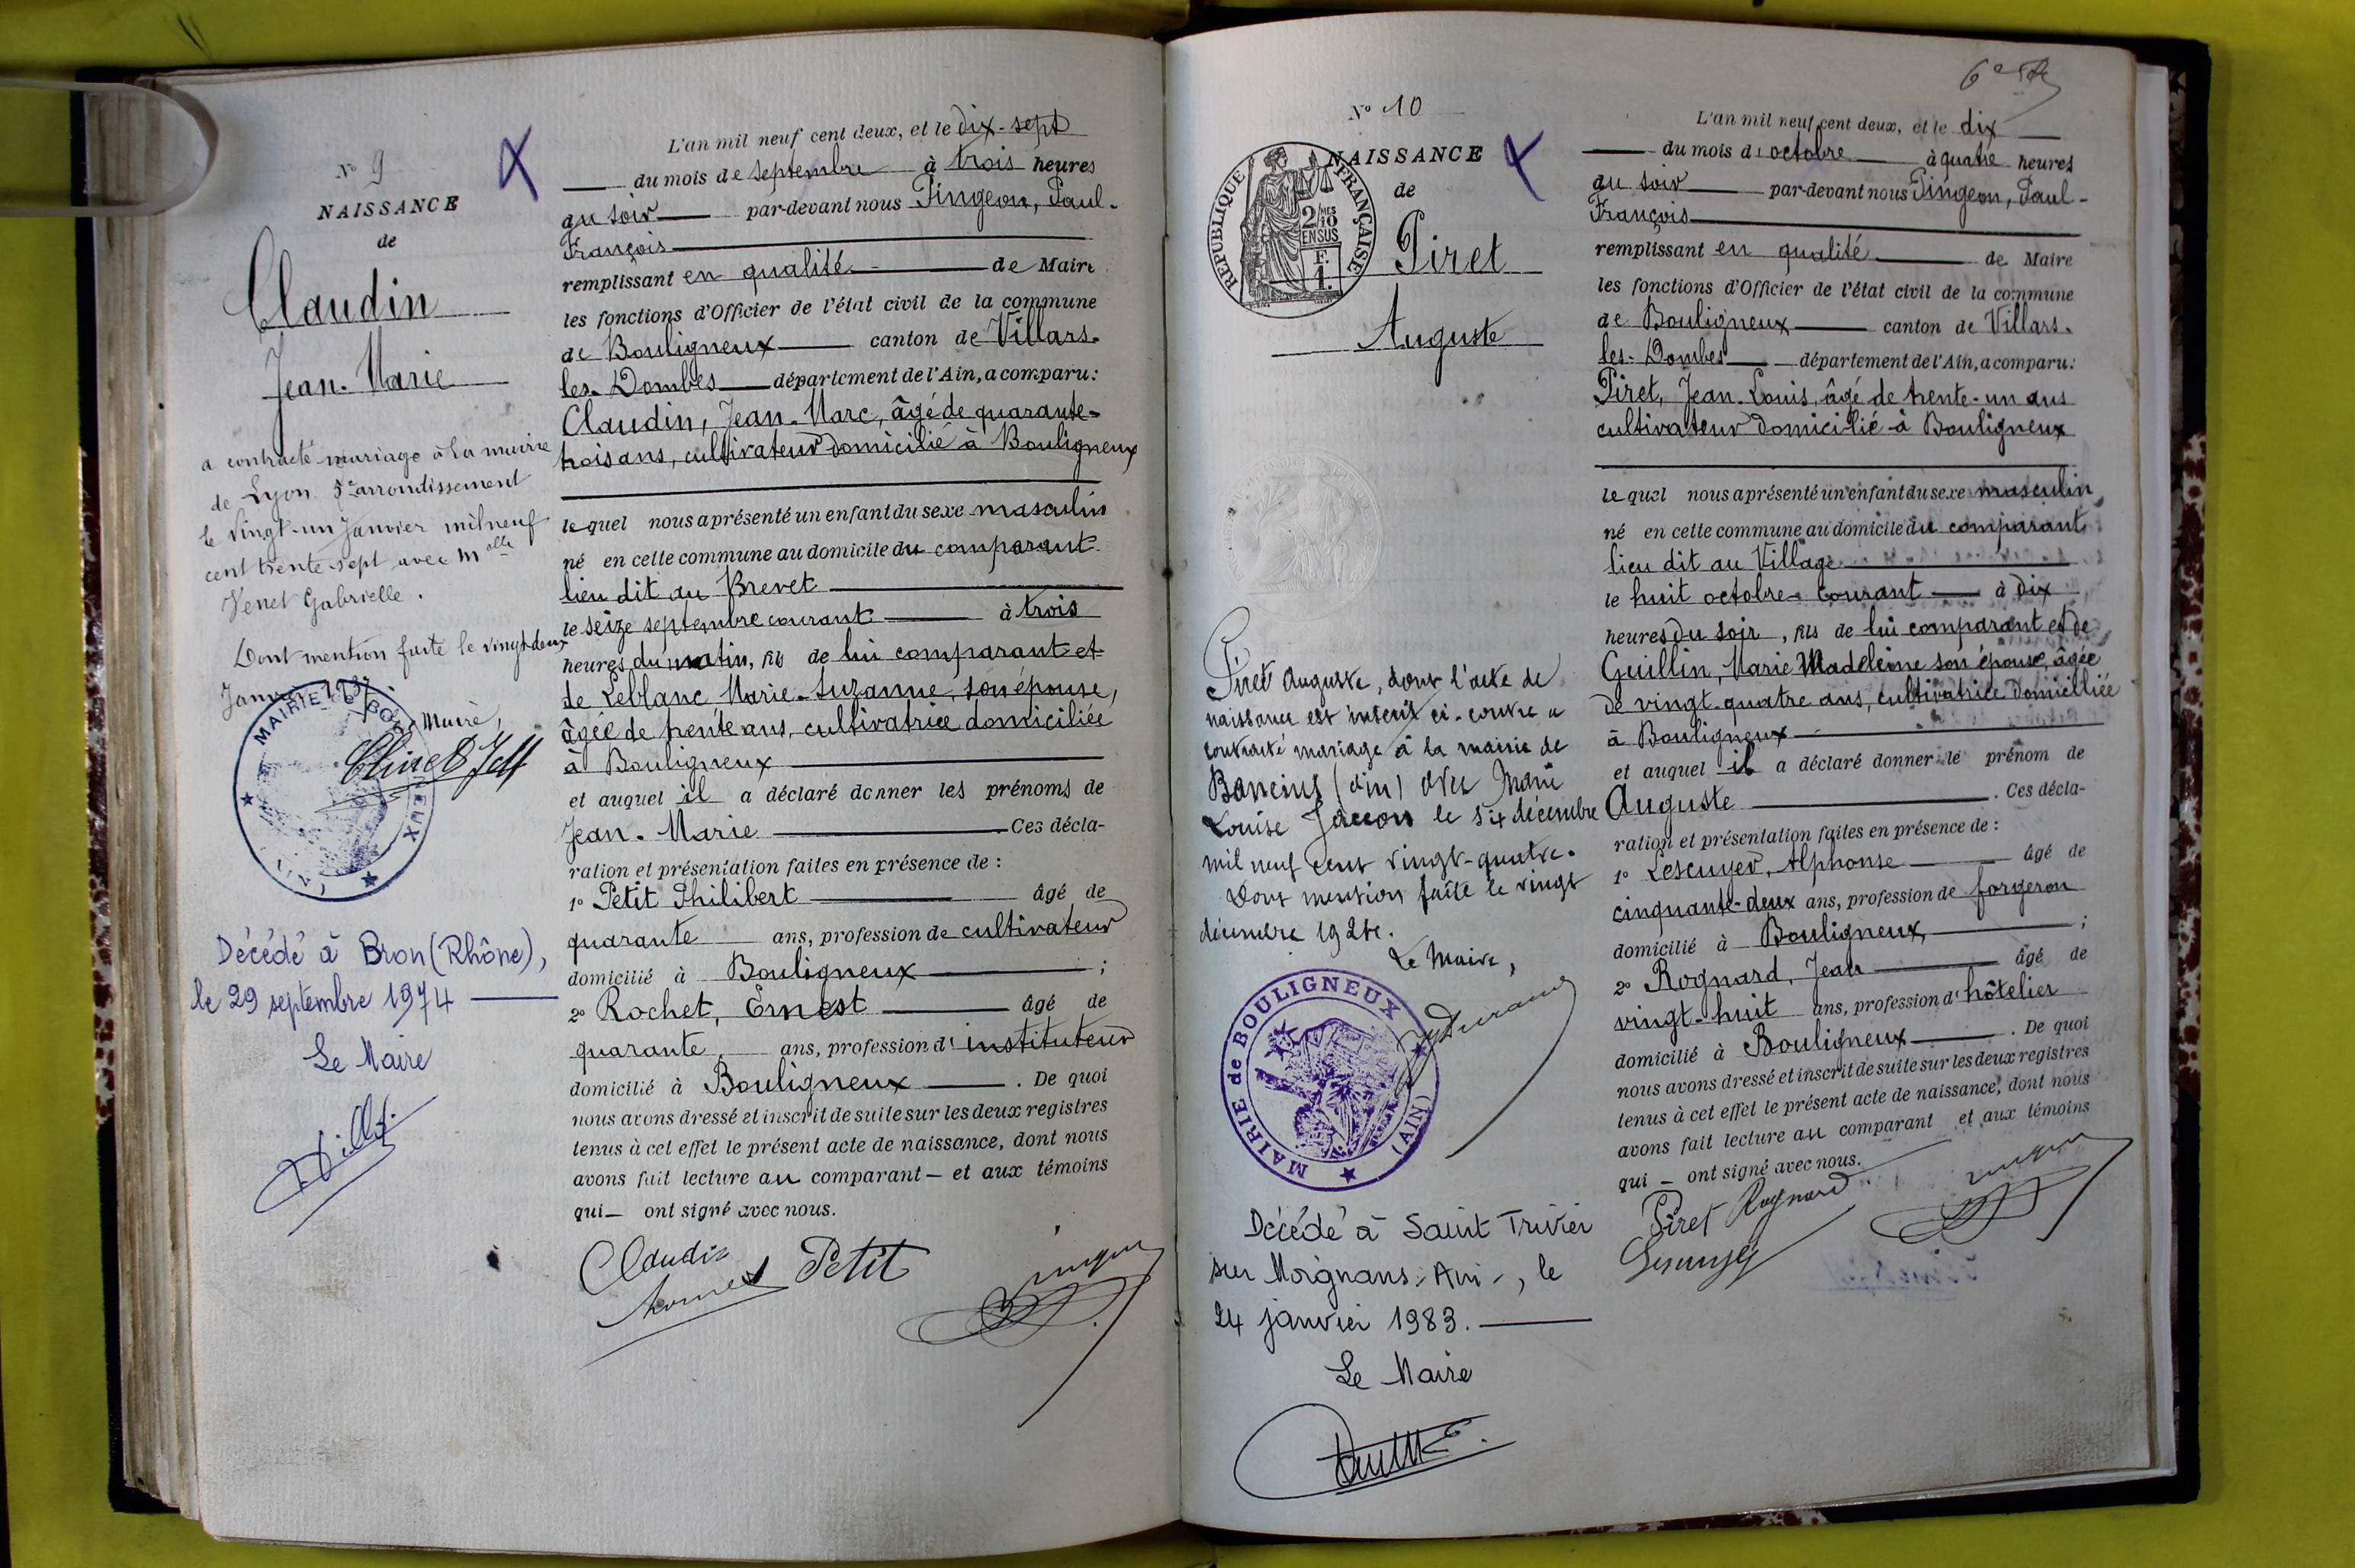 N° 9
NAISSANCE
de
Claudin
Jean-Marie
a contracté mariage à la mairie
de Lyon 5e arrondissement
le vingt-un Janvier mil neuf
cent trente-sept avec Melle
Venet Gabrielle.
Dont mention faite le vingt-deux
Janvier 1937
Maire,
MAIRIE DE BOULIGNEUX
(AIN)
Décédé à Bron (Rhône),
le 29 septembre 1974
Le Maire
L'an mil neuf cent deux, et le dix-sept
du mois de septembre à trois heures
du soir par-devant nous Pingeon, Paul-
François
remplissant en qualité de Maire
les fonctions d'Officier de l'état civil de la commune
de Bouligneux canton de Villars-
les-Dombes département de l'Ain, a comparu:
Claudin, Jean-Marc, âgé de quarante-
trois ans, cultivateur domicilié à Bouligneux
lequel nous a présenté un enfant du sexe masculin
né en cette commune au domicile du comparant
lieu dit au Brevet
le seize septembre courant à trois
heures du matin, fils de lui comparant et
de Leblanc Marie-Suzanne, son épouse,
âgée de trente ans, cultivatrice domiciliée
à Bouligneux
et auquel il a déclaré donner les prénoms de
Jean-Marie Ces décla-
ration et présentation faites en présence de :
1° Petit Philibert âgé de
quarante ans, profession de cultivateur
domicilié à Bouligneux ;
2° Rochet, Ernest âgé de
quarante ans, profession d'instituteur
domicilié à Bouligneux . De quoi
nous avons dressé et inscrit de suite sur les deux registres
tenus à cet effet le présent acte de naissance, dont nous
avons fait lecture au comparant — et aux témoins
qui — ont signé avec nous.
Claudin
Petit
N° 10
NAISSANCE
de
Piret
Auguste
RÉPUBLIQUE FRANÇAISE
2/10MES
EN SUS
F.
1.
Piret Auguste, dont l'acte de
naissance est inscrit ci-contre a
contracté mariage à la mairie de
Baneins (Ain) avec Marie
Louise Jacson le six décembre
mil neuf cent vingt-quatre.
Dont mention faite le vingt
décembre 1924.
Le Maire,
MAIRIE de BOULIGNEUX
(AIN)
Décédé à Saint Trivier
sur Moignans -Ain-, le
24 janvier 1983.
Le Maire
L'an mil neuf cent deux, et le dix
du mois d'octobre à quatre heures
du soir par-devant nous Pingeon, Paul-
François
remplissant en qualité de Maire
les fonctions d'Officier de l'état civil de la commune
de Bouligneux canton de Villars-
les-Dombes département de l'Ain, a comparu:
Piret, Jean-Louis, âgé de trente-un ans
cultivateur domicilié à Bouligneux
lequel nous a présenté un enfant du sexe masculin
né en cette commune au domicile du comparant
lieu dit au Village
le huit octobre courant à dix
heures du soir, fils de lui comparant et de
Guillin, Marie Madeleine son épouse, âgée
de vingt-quatre ans, cultivatrice domiciliée
à Bouligneux
et auquel il a déclaré donner le prénom de
Auguste . Ces décla-
ration et présentation faites en présence de :
1° Lescuyer, Alphonse âgé de
cinquante-deux ans, profession de forgeron
domicilié à Bouligneux, ;
2° Rognard, Jean âgé de
vingt-huit ans, profession d'hôtelier
domicilié à Bouligneux . De quoi
nous avons dressé et inscrit de suite sur les deux registres
tenus à cet effet le présent acte de naissance, dont nous
avons fait lecture au comparant et aux témoins
qui — ont signé avec nous.
Piret Rognard